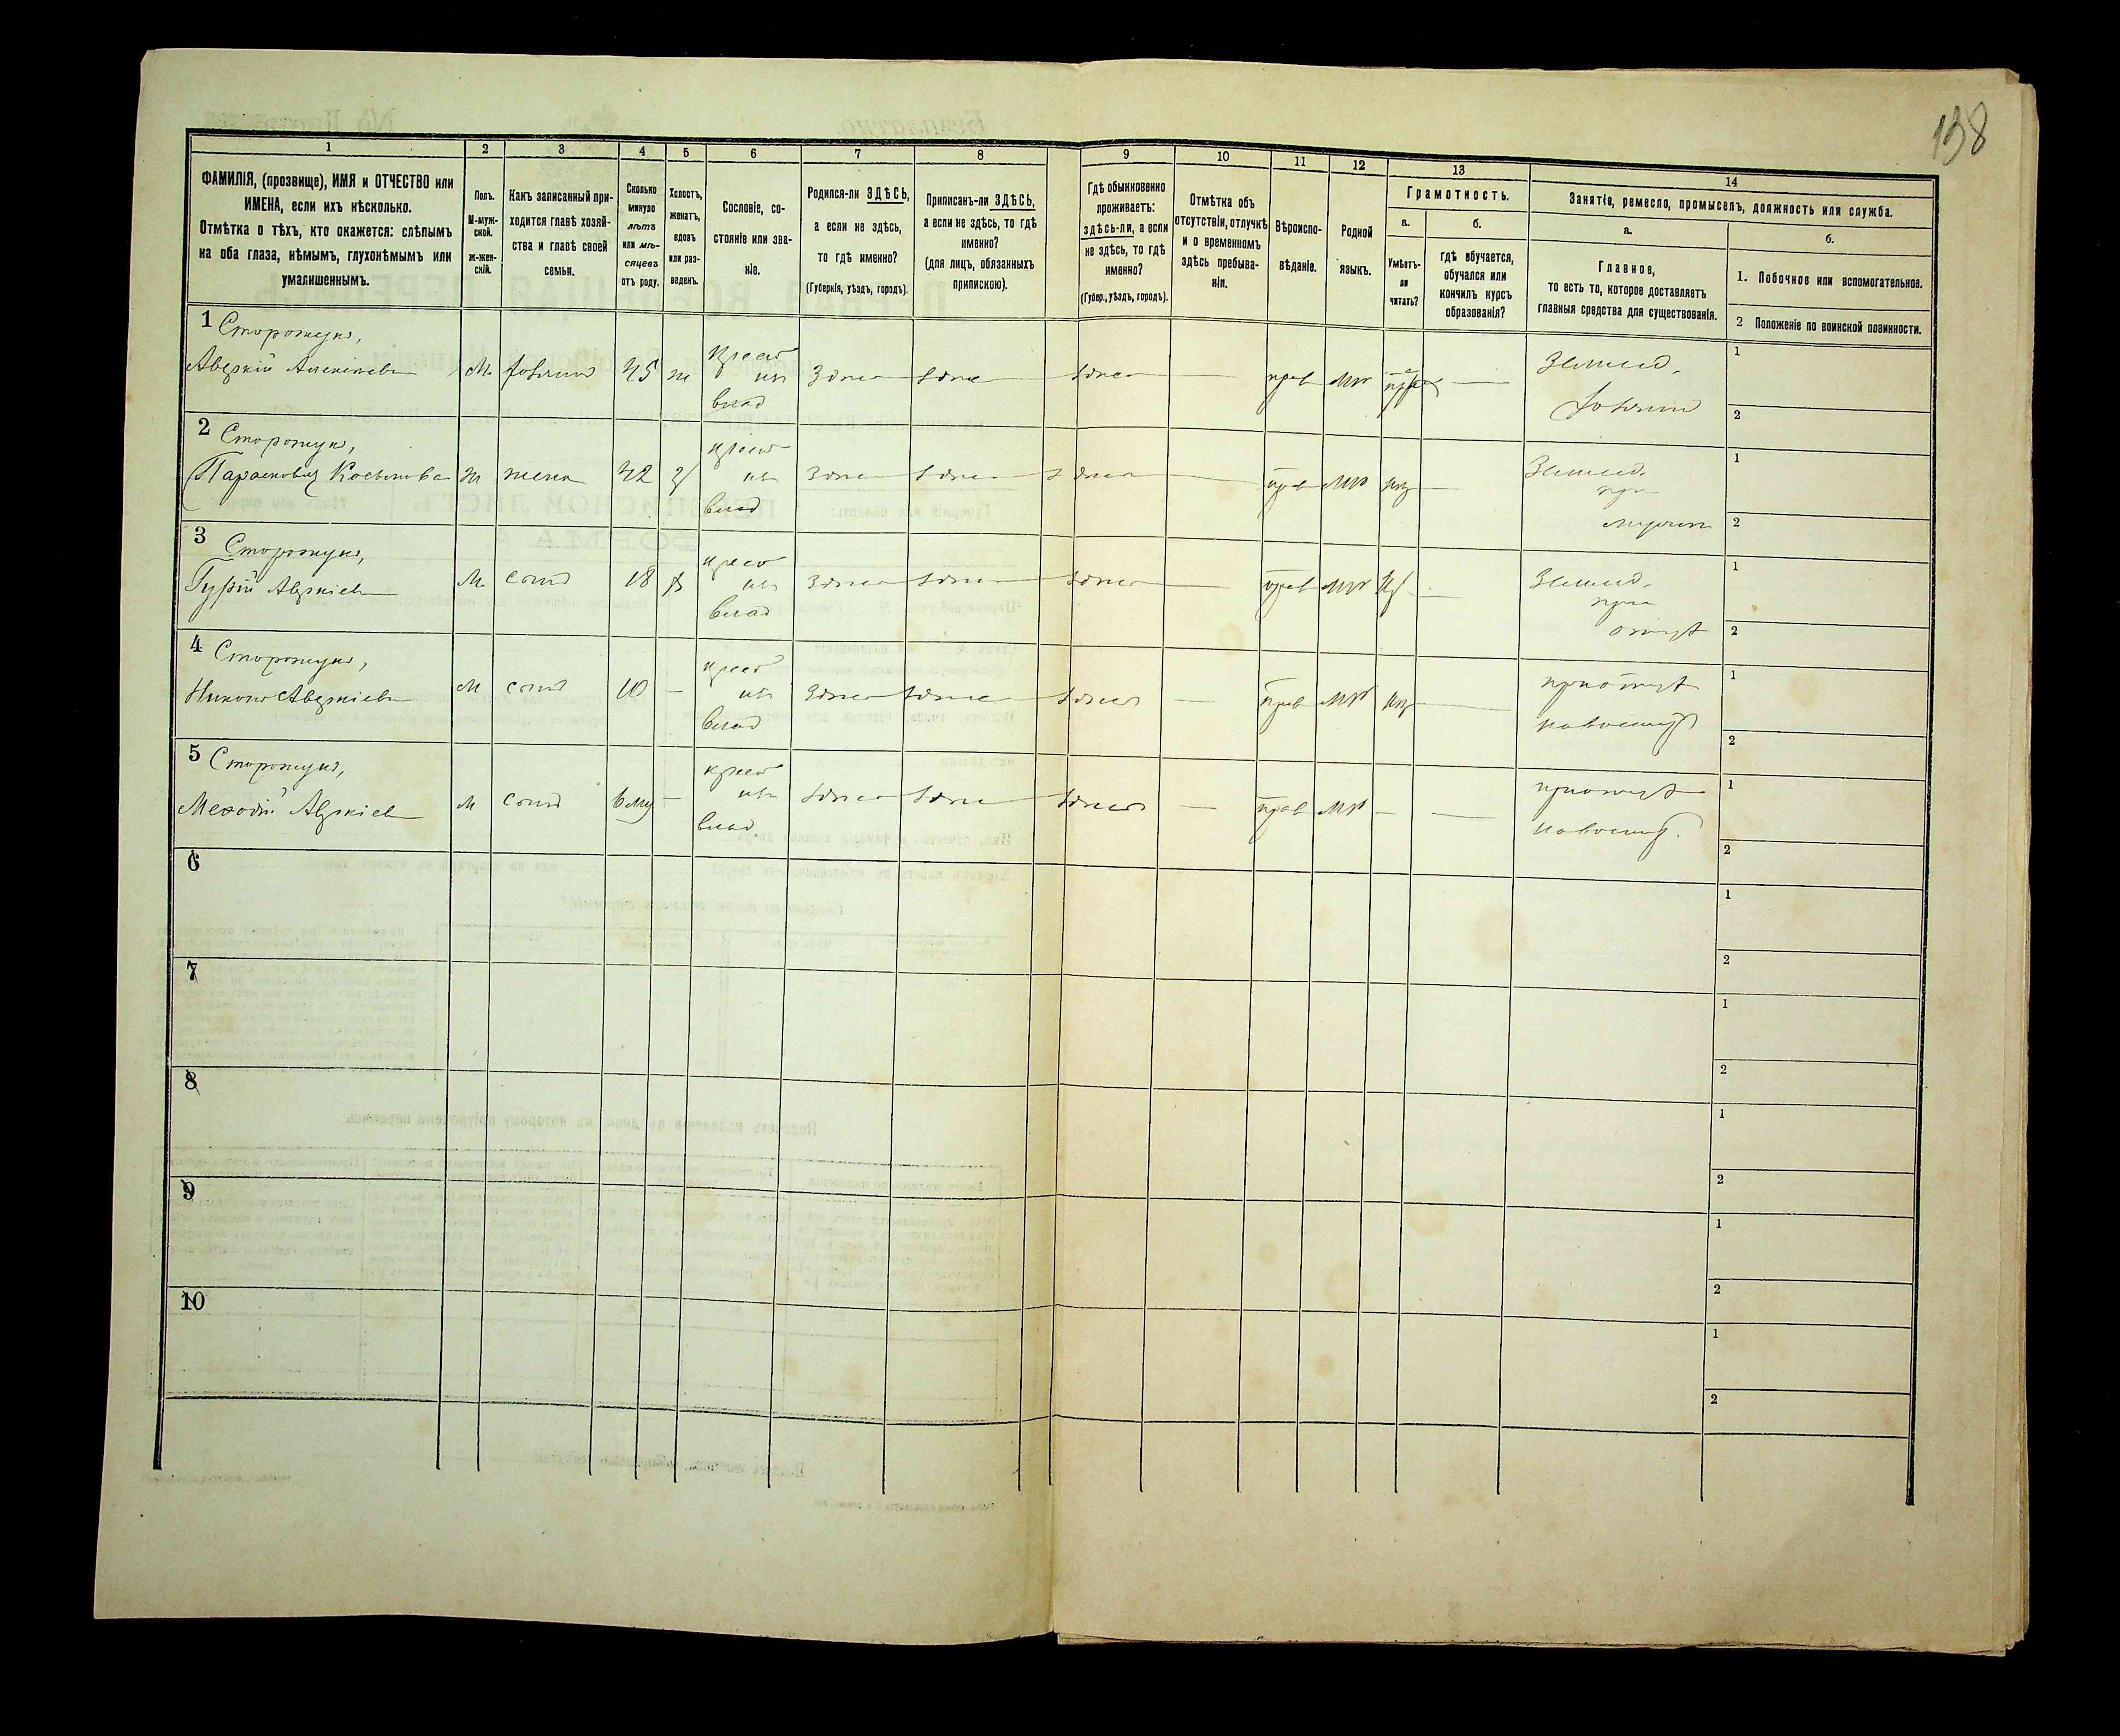 138
1
2
3
4
5
6
7
8
9
10
11
12
13
14
ФАМИЛІЯ, (прозвище), ИМЯ и ОТЧЕСТВО или
ИМЕНА, если ихъ нѣсколько.
Отмѣтка о тѣхъ, кто окажется: слѣпымъ
на оба глаза, нѣмымъ, глухонѣмымъ или
умалишеннымъ.
Полъ.
М-муж-
ской.
Ж-жен-
скій.
Какъ записанный при-
ходится главѣ хозяй-
ства и главѣ своей
семьи.
Сколько
минуло
лѣтъ
или мѣ-
сяцевъ
отъ роду.
Холостъ,
женатъ,
вдовъ
или раз-
веденъ.
Сословіе, со-
стояніе или зва-
ніе.
Родился-ли ЗДѢСЬ,
а если не здѣсь,
то гдѣ именно?
(Губернія, уѣздъ, городъ).
Приписанъ-ли ЗДѢСЬ,
а если не здѣсь, то гдѣ
именно?
(для лицъ, обязанныхъ
припискою).
Гдѣ обыкновенно
проживаетъ:
здѣсь-ли, а если
не здѣсь, то гдѣ
именно?
(Губер., уѣздъ, городъ).
Отмѣтка объ
отсутствіи, отлучкѣ
и о временномъ
здѣсь пребыва-
ніи.
Вѣроиспо-
вѣданіе.
Родной
языкъ.
Грамотность.
а.
Умѣетъ-
ли
читать?
б.
гдѣ обучается,
обучался или
кончилъ курсъ
образованія?
Занятіе, ремесло, промыселъ, должность или служба.
а.
Главное,
то есть то, которое доставляетъ
главныя средства для существованія.
б.
1. Побочное или вспомогательное.
2 Положеніе по воинской повинности.
1 Сторожукъ,
Аверкій Алексѣевъ м. хозяинъ 45 ж крест из влад здѣсь здѣсь здѣсь — прав мр — Землед. хозяинъ
1
2
2 Сторожук,
Парасковія Косьмова ж жена 42 з крест из влад здѣсь здѣсь здѣсь — прав мр нз — Землед. при мужѣ
1
2
3 Сторожукъ,
Гурій Аверкіев м сынъ 18 х крест из влад здѣсь здѣсь здѣсь — прав мр — Землед. при отцѣ
1
2
4 Сторожукъ,
Никонъ Аверкіевъ м сынъ 10 — крест из влад здѣсь здѣсь здѣсь — прав мр нз — при отцѣ
1
2
5 Сторожукъ,
Меѳодій Аверкіев м сынъ — крест из влад здѣсь здѣсь здѣсь — прав мр — — при отцѣ
1
2
6
1
2
7
1
2
8
1
2
9
1
2
10
1
2